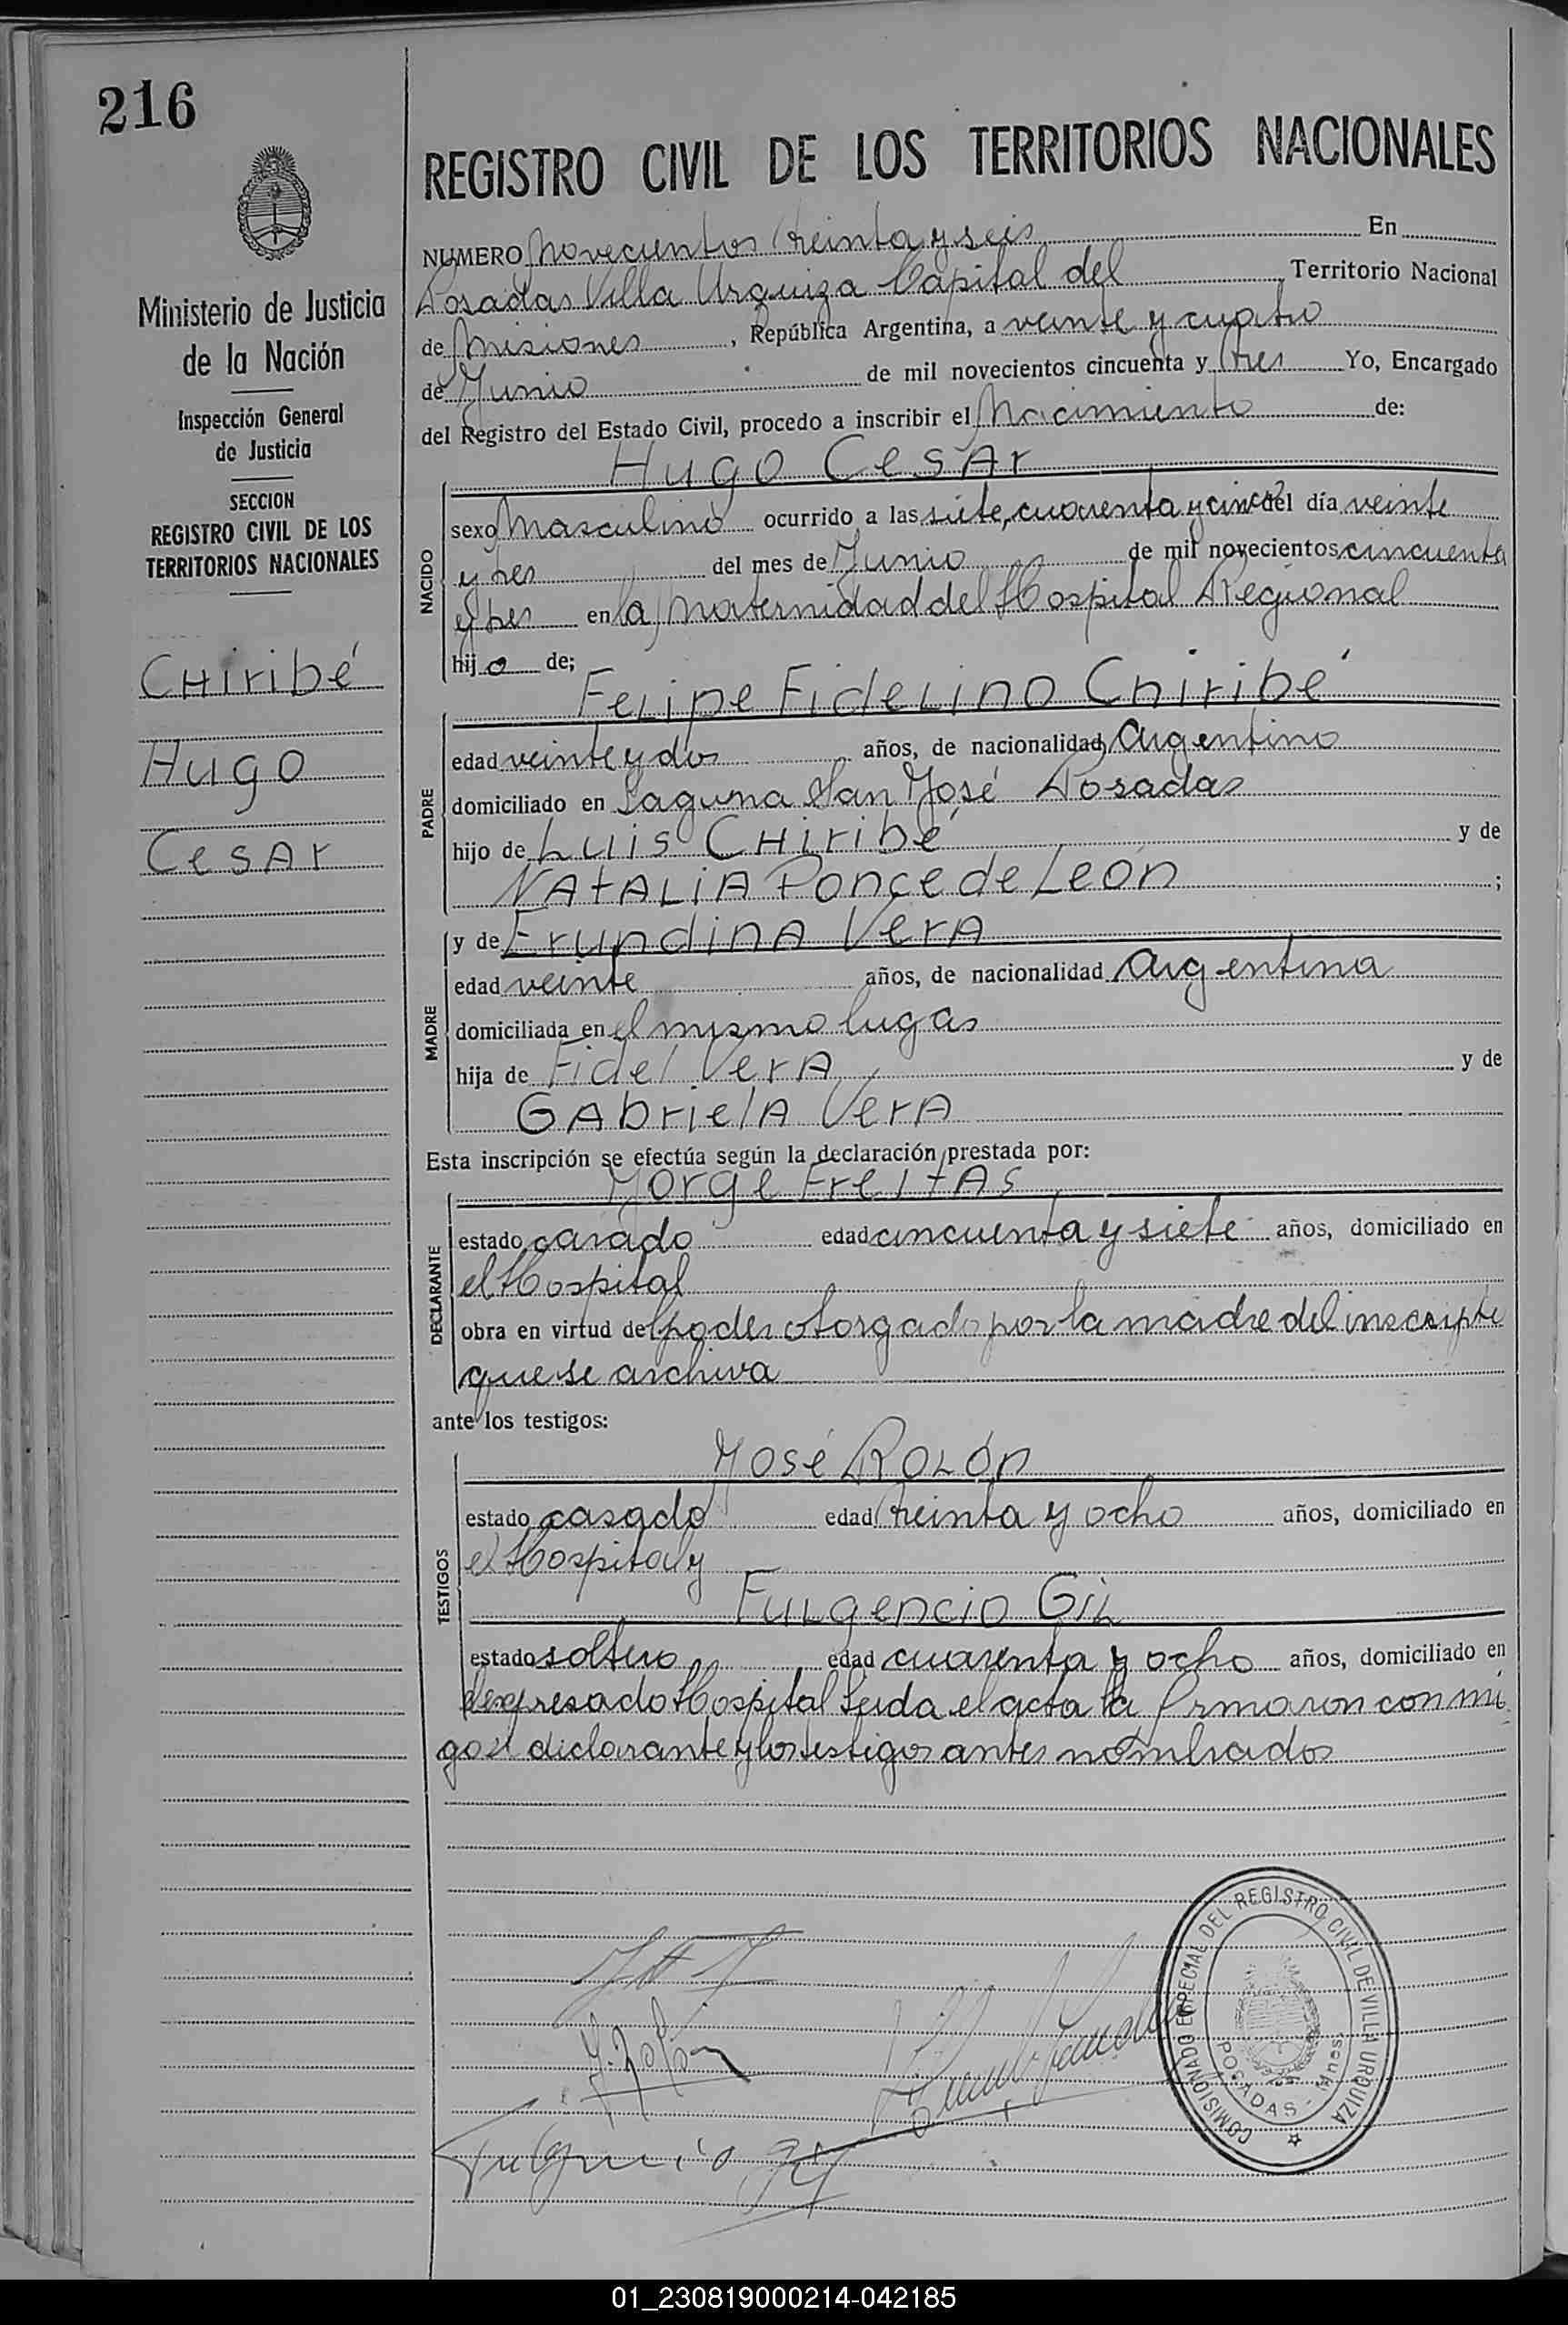 216
REGISTRO CIVIL DE LOS TERRITORIOS NACIONALES
Ministerio de Justicia
de la Nación
Inspección General
de Justicia
SECCION
REGISTRO CIVIL DE LOS
TERRITORIOS NACIONALES
CHiribé
Hugo
Cesar
NUMERO Novecientos treinta y seis En
Posadas Villa Urquiza Capital del Territorio Nacional
de Misiones, República Argentina, a veinte y cuatro
de Junio de mil novecientos cincuenta y tres Yo, Encargado
del Registro del Estado Civil, procedo a inscribir el Nacimiento de:
Hugo Cesar
NACIDO
sexo Masculino ocurrido a las siete, cuarenta y cinco del día veinte
y tres del mes de Junio de mil novecientos cincuenta
y tres en la Maternidad del Hospital Regional
hijo de;
Felipe Fidelino Chiribé
PADRE
edad veinte y dos años, de nacionalidad Argentino
domiciliado en Laguna San José Posadas
hijo de Luis CHiribé y de
Natalia Ponce de León ;
MADRE
y de Erundina Vera
edad veinte años, de nacionalidad Argentina
domiciliada en el mismo lugar
hija de Fidel Vera y de
Gabriela Vera
Esta inscripción se efectúa según la declaración prestada por:
Jorge Freitas
DECLARANTE
estado casado edad cincuenta y siete años, domiciliado en
el Hospital
obra en virtud del poder otorgado por la madre del inscripto
que se archiva
ante los testigos:
TESTIGOS
José Rolón
estado casado edad treinta y ocho años, domiciliado en
el Hospital y
Fulgencio Gil
estado soltero edad cuarenta y ocho años, domiciliado en
el expresado Hospital Leida el acta la firmaron conmi
go el declarante y los testigos antes nombrados
J. Rolón
Fulgencio Gil
COMISIONADO ESPECIAL DEL REGISTRO CIVIL DE VILLA URQUIZA
POSADAS - Mnes.
01_230819000214-042185